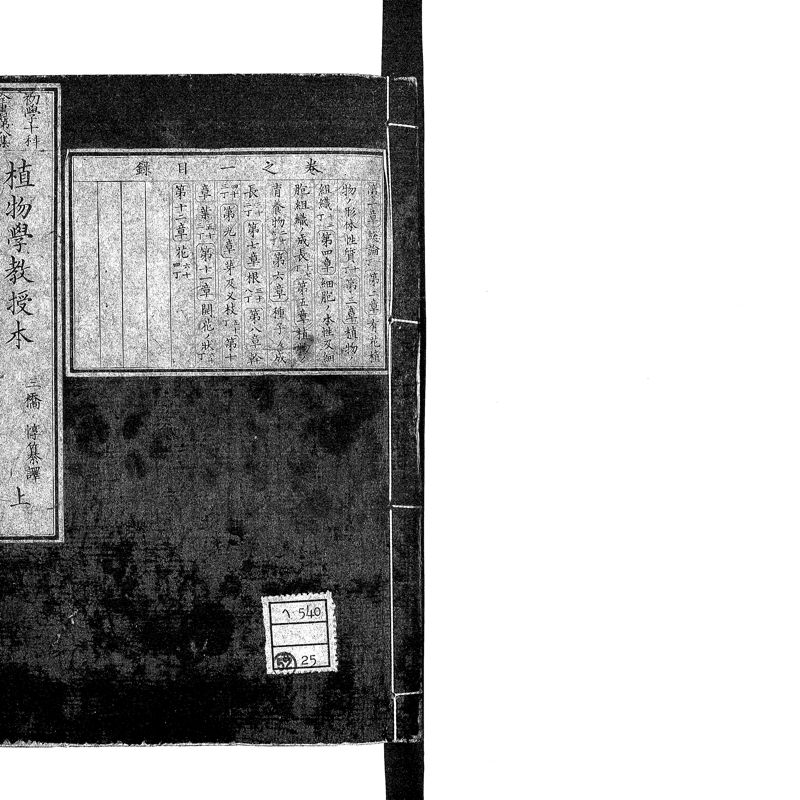 卷之一目錄
第一章 總論 第二章 有花植
物ノ形体性質 第三章 植物
組織 第四章 細胞ノ本性及細
胞組織ノ成長 第五章 植物
育養物 第六章 種子ノ成
長 第七章 根 第八章 幹
第九章 芽及叉枝 第十
章 葉 第十一章 開花ノ狀
第十二章 花
物學十科
植物學教授本
三橋惇纂譯
上
ヘ 540
52 25